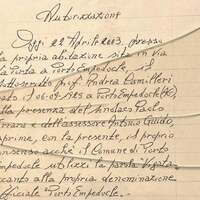 Autorizzazione
Oggi 22 Aprile 2003, presso
la propria abitazione sita in Via
Porta a Porto Empedocle, il
sottoscritto Prof. Andrea Camilleri
nato il 06-09-1925 a Porto Empedocle (AG)
alla presenza del Sindaco Paolo
Ferrara e dell'assessore Antonio Guido
esprime, con la presente, il proprio
consenso acché il Comune di Porto
Empedocle utilizzi la parola Vigata
accanto alla propria denominazione
ufficiale Porto Empedocle.